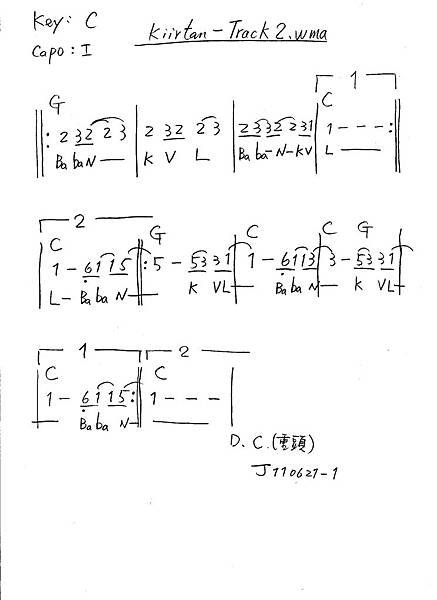 Key: C
Capo: I
Kiirtan - Track 2.wma
1
G C
||: 2 32 2 3 | 2 32 2 3 | 2 3 3 2 2 3 1 | 1 - - - :||
Ba ba N — K V L Ba ba - N - K V L —
2
C G C C G
| 1 - 6 1 1 5 ||: 5 - 5 3 3 1 | 1 - 6 1 1 3 | 3 - 5 3 3 1 |
L - Ba ba N — K VL Ba ba N — K VL
1 2
C C
| 1 - 6 1 1 5 :|| 1 - - - |
Ba ba N —
D. C. (重頭)
J110621-1